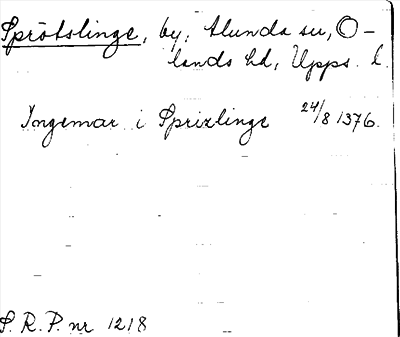 Sprötslinge, by, Alunda sn, O-
lands hd, Upps. l.
Ingemar i Sprizlinge 24/8 1376.
S. R. P. nr 1218